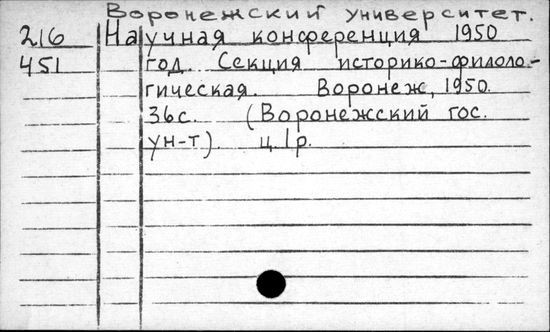 Воронежский университет.
216 Научная конференция 1950
451 год. Секция историко-филоло-
гическая. Воронеж, 1950.
36с. (Воронежский гос.
ун-т). ц. 1р.